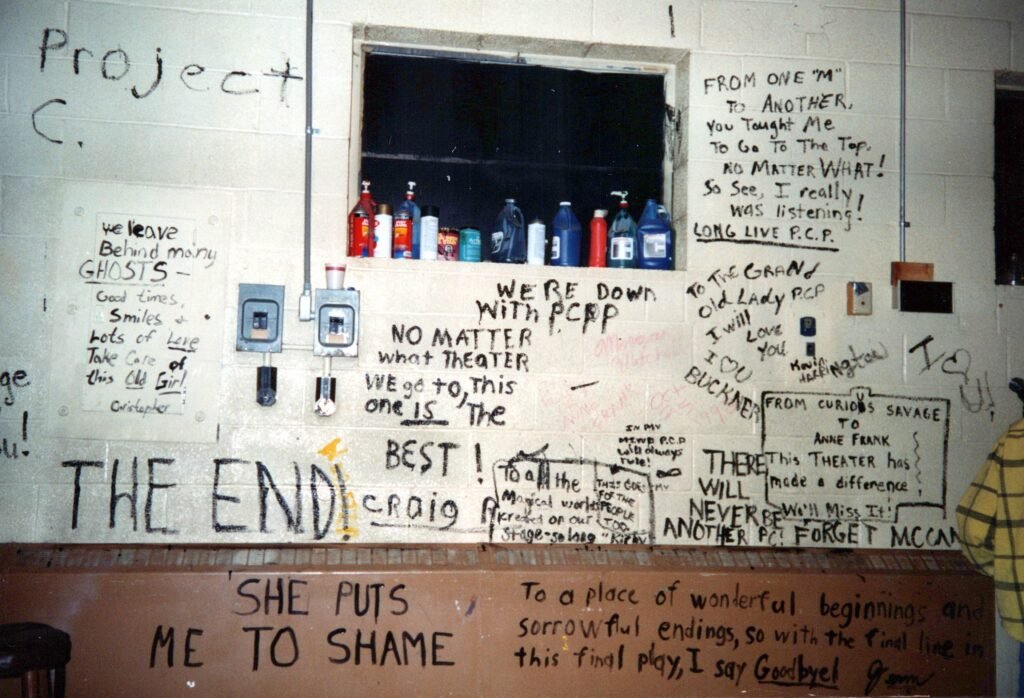 Project
C.
we leave
Behind many
GHOSTS -
Good times,
Smiles +
Lots of Love
Take Care of
this Old Girl.
Christopher
WE'RE DOWN
WITH PCPP
NO MATTER
what THEATER
WE go to, This
one IS The
BEST!
Craig
FROM ONE "M"
TO ANOTHER,
You Taught Me
To Go To The Top,
NO MATTER WHAT!
So See, I really
was listening!
LONG LIVE P.C.P.
To THE GRAND
Old LADY PCP
I will
Love
You
I ♡
BUCKNER
Kevin
I ♡
U!
FROM CURIOUS SAVAGE
TO
ANNE FRANK
This THEATER has
made a difference!
We'll Miss It!
IN MY
MIND P.C.P
will always
rule!
To all the
Magical worlds
kreated on our
Stage - so long
THIS GOES
FOR THE
PEOPLE
TOO!
THERE
WILL
NEVER BE
ANOTHER PC!
FORGET MCCAN
ge
u!
THE END!
SHE PUTS
ME TO SHAME
To a place of wonderful beginnings and
sorrowful endings, so with the final line in
this final play, I say Goodbye!